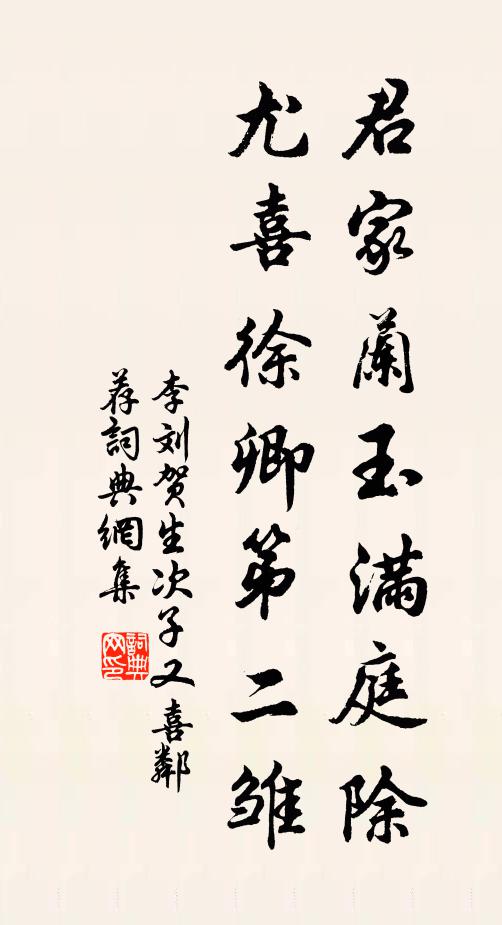 君家兰玉满庭除
尤喜徐卿第二雏
李刘贺生次子又喜邻
荐词典网集
词典网印